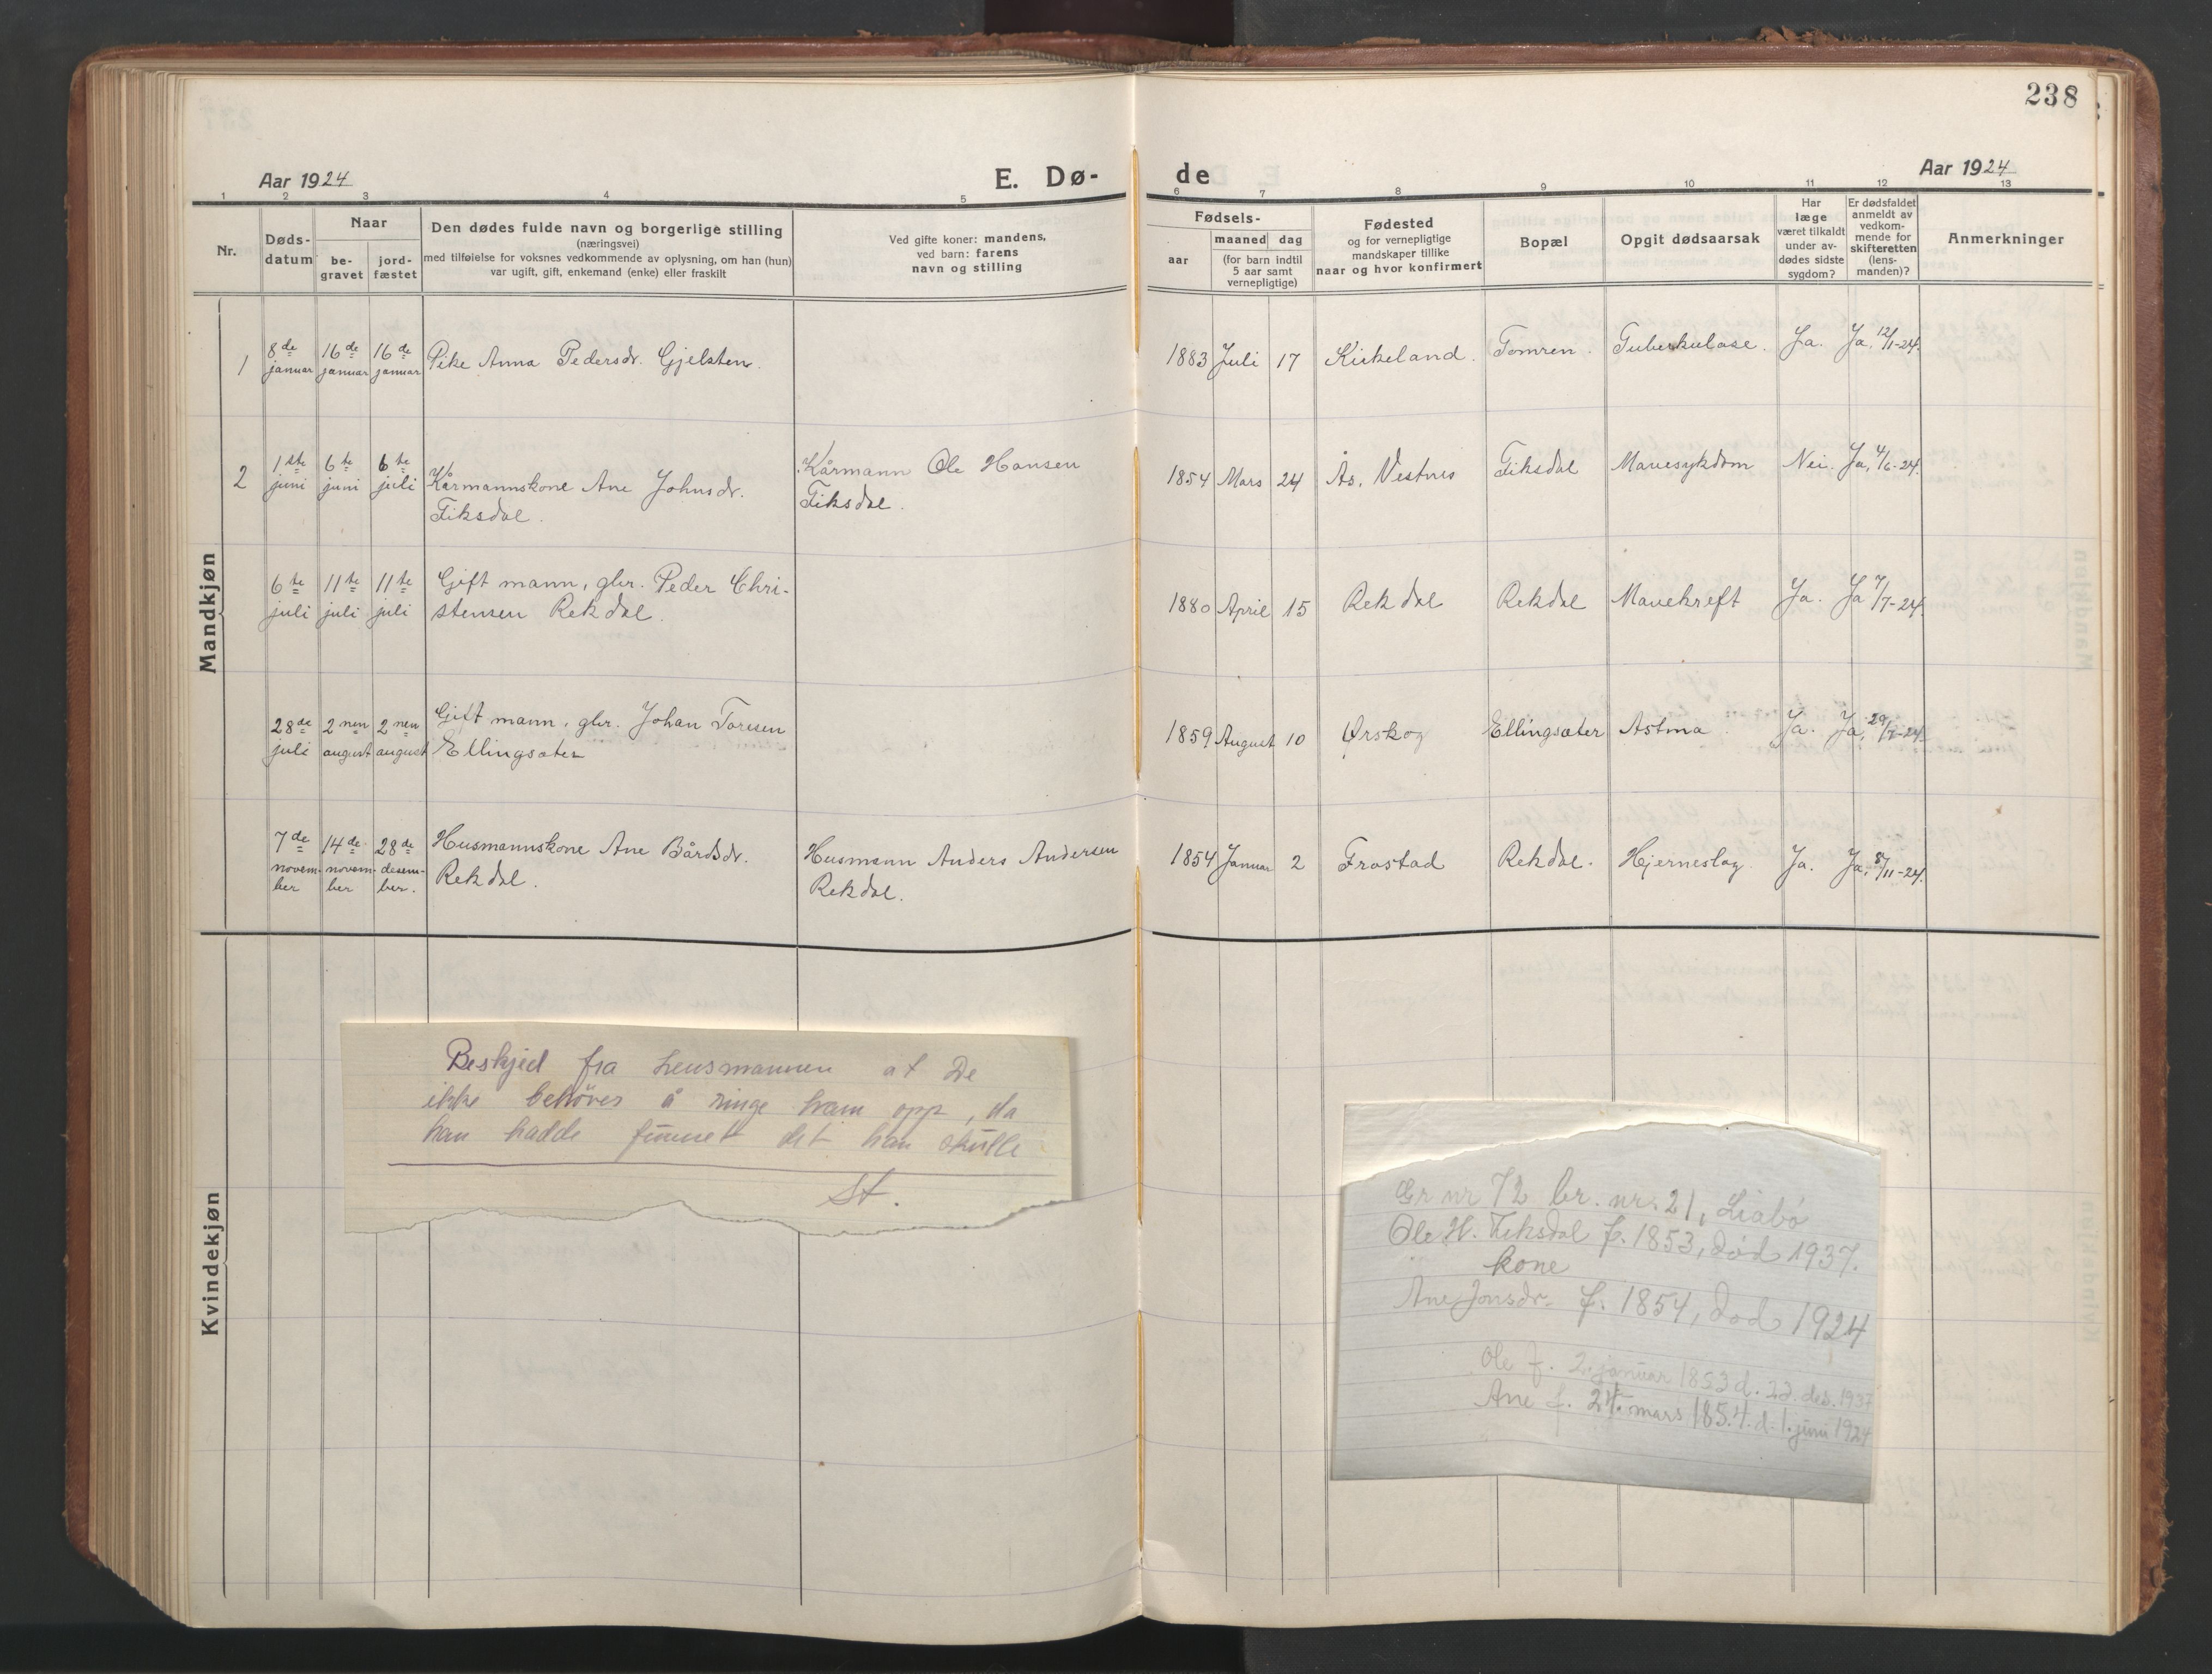 238
Aar 1924
E. Dø-
de
Aar 1924
1 2 3 4 5 6 7 8 9 10 11 12 13
Nr.
Døds-
datum
Naar
be-
gravet
jord-
fæstet
Den dødes fulde navn og borgerlige stilling
(næringsvei)
med tilføielse for voksnes vedkommende av oplysning, om han (hun)
var ugift, gift, enkemand (enke) eller fraskilt
Ved gifte koner: mandens,
ved barn: farens
navn og stilling
Fødsels-
aar
maaned dag
(for barn indtil
5 aar samt
vernepligtige)
Fødested
og for vernepligtige
mandskaper tillike
naar og hvor konfirmert
Bopæl
Opgit dødsaarsak
Har
læge
været tilkaldt
under av-
dødes sidste
sygdom?
Er dødsfaldet
anmeldt av
vedkom-
mende for
skifteretten
(lens-
manden)?
Anmerkninger
Mandkjøn
1
8de
januar
16de
januar
16de
januar
Pike Anna Pedersdr. Gjelsten.
1883 Juli 17
Kirkeland.
Tomren.
Tuberkulose.
Ja.
Ja, 12/1-24.
2
1ste
juni
6te
juni
6te
juli
Kårmannskone Ane Johnsdr.
Fiksdal.
Kårmann Ole Hansen
Fiksdal.
1854 Mars 24
Ås, Vestnes
Fiksdal
Mavesykdom
Nei.
Ja, 4/6-24.
6te
juli
11te
juli
11te
juli
Gift mann, gbr. Peder Chri-
stensen Rekdal.
1880 April 15
Rekdal
Rekdal
Mavekreft
Ja.
Ja 7/7-24.
28de
juli
2nen
august
2nen
august
Gift mann, gbr. Johan Toresen
Ellingsæter
1859 August 10
Ørskog
Ellingsæter
Astma
Ja.
Ja, 29/7-24.
7de
novem-
ber
14de
novem-
ber
28de
desem-
ber.
Husmannskone Ane Bårdsdr.
Rekdal.
Husmann Anders Andersen
Rekdal.
1854 Januar 2
Frostad
Rekdal.
Hjerneslag.
Ja.
Ja, 8/11-24.
Kvindekjøn
Beskjed fra lensmannen at De
ikke behöver å ringe ham opp, da
han hadde funnet det han skulle
St.
Gr nr 72 br. nr. 21, Liabø
Ole H. Fiksdal f. 1853, død 1937.
kone
Ane Jonsdr. f. 1854, død 1924
Ole f. 2. januar 1853 d. 23. des. 1937
Ane f. 24. mars 1854. d. 1. juni 1924